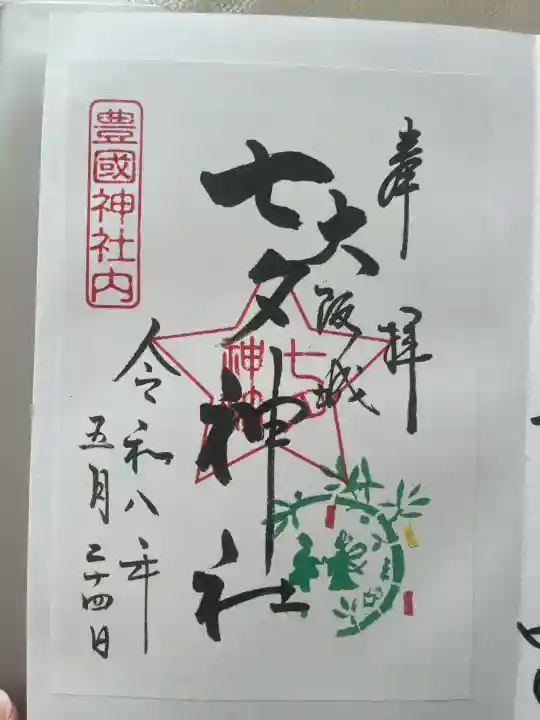 奉拝
大阪城
七夕神社
豊國神社内
令和八年
五月二十四日
七夕
神社